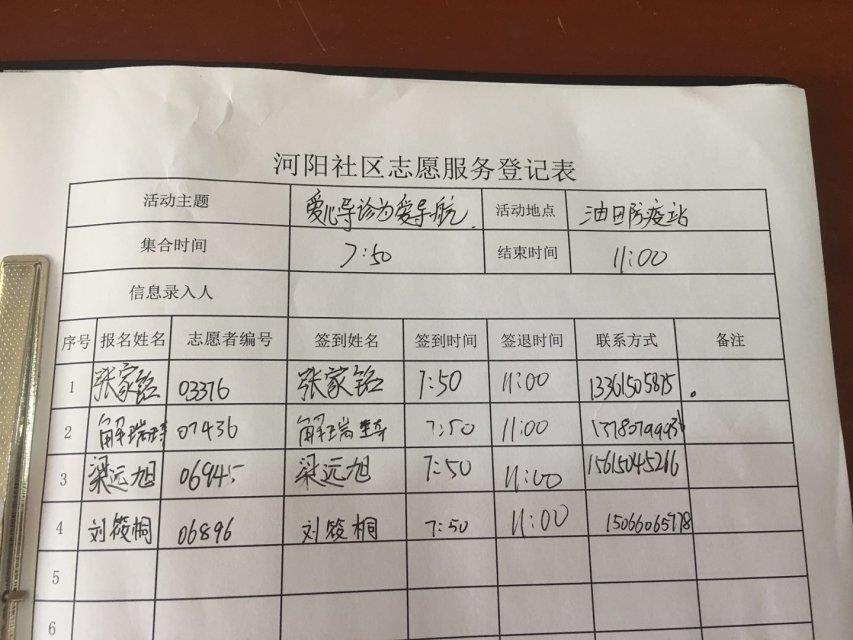 河阳社区志愿服务登记表
活动主题 爱心导诊为爱导航. 活动地点 油田防疫站
集合时间 7:50 结束时间 11:00
信息录入人
序号 报名姓名 志愿者编号 签到姓名 签到时间 签退时间 联系方式 备注
1 张家铭 03376 张家铭 7:50 11:00 13361505875
2 07436 7:50 11:00
3 梁远旭 06945 梁远旭 7:50 11:00 15615045266
4 刘筱桐 06896 刘筱桐 7:50 11:00 15066065778
5
6